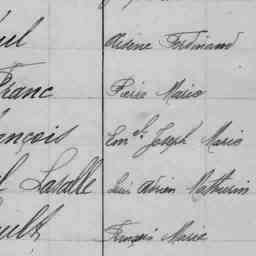 Arsène Ferdinand
Franc Pierre Marie
ançois Em.el Joseph Marie
Lasalle Louis Adrien Mathurin
François Marie